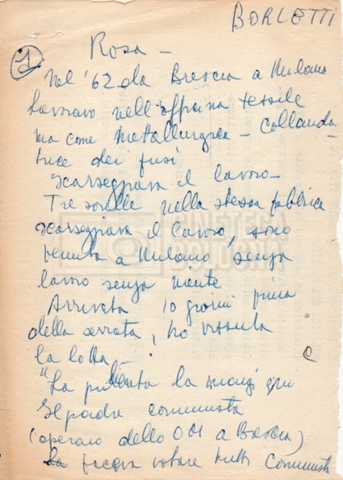 BORLETTI
1
Rosa -
Nel '62 da Brescia a Milano
lavoravo nell'officina tessile
ma come metallurgica - collauda-
trice dei fusi
scarseggiava il lavoro -
Tre sorelle nella stessa fabbrica
scarseggiava il lavoro, sono
venuta a Milano senza
lavoro senza niente
Arrivata 10 giorni prima
della serrata, ho vissuto
la lotta -
"La polenta la mangi qui
Il padre comunista
(operaio dello OM a Brescia)
faceva votare tutti comunista
CINETECA
BOLOGNA